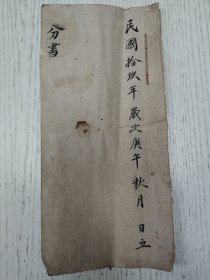 民國拾玖年歲次庚午秋月 日立
分書